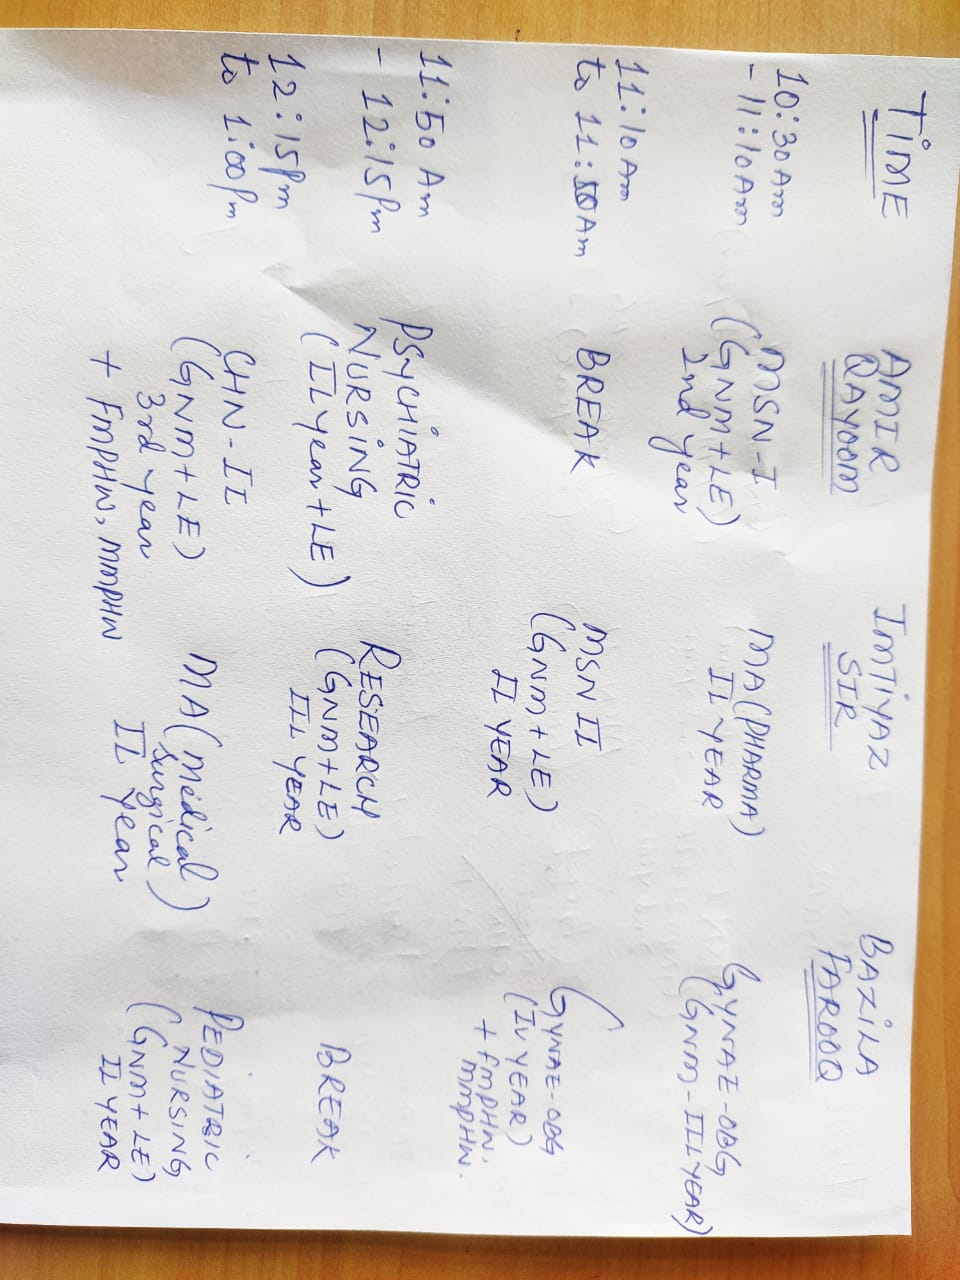 TIME
AMIR
QAYOOM
IMTIYAZ
SIR
BAZILA
FAROOQ
10:30 Am
- 11:10 Am
MSN-I
(GNM + LE)
2nd year
MA (PHARMA)
II YEAR
GYNAE-OBG
(GNM - III YEAR)
11:10 Am
to 11:50 Am
BREAK
MSN II
(GNM + LE)
II YEAR
GYNAE-OBG
(IV YEAR)
+ FMPHW,
MMPHW.
11:50 Am
- 12:15 Pm
PSYCHIATRIC
NURSING
(II year + LE)
RESEARCH
(GNM + LE)
III YEAR
BREAK
12:15 Pm
to 1:00 Pm
CHN-II
(GNM + LE)
3rd year
+ FMPHW, MMPHW
MA (Medical
Surgical)
II Year
PEDIATRIC
NURSING
(GNM + LE)
II YEAR